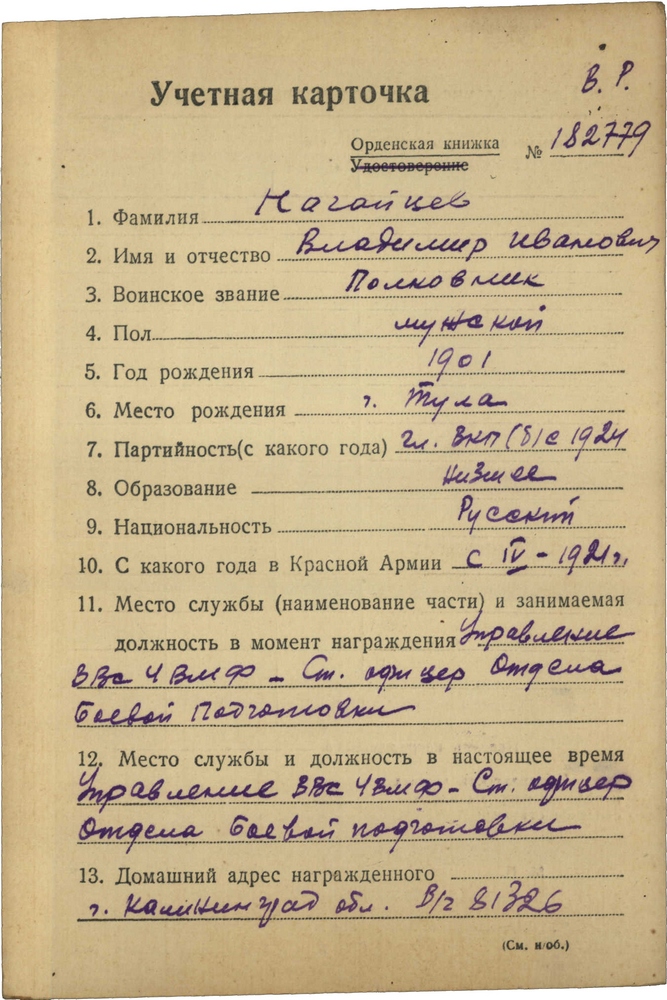 В. Р.
Учетная карточка
Орденская книжка № 182779
Удостоверение
1. Фамилия Нагайцев
2. Имя и отчество Владимир Иванович
3. Воинское звание Полковник
4. Пол мужской
5. Год рождения 1901
6. Место рождения г. Тула
7. Партийность (с какого года) чл. ВКП(б) с 1924
8. Образование низшее
9. Национальность Русский
10. С какого года в Красной Армии с IV - 1921 г.
11. Место службы (наименование части) и занимаемая
должность в момент награждения Управление
ВВС 4 ВМФ - Ст. офицер Отдела
Боевой Подготовки
12. Место службы и должность в настоящее время
Управление ВВС 4 ВМФ - Ст. офицер
Отдела Боевой подготовки
13. Домашний адрес награжденного
г. Калининград обл. в/ч 81326
(См. н/об.)